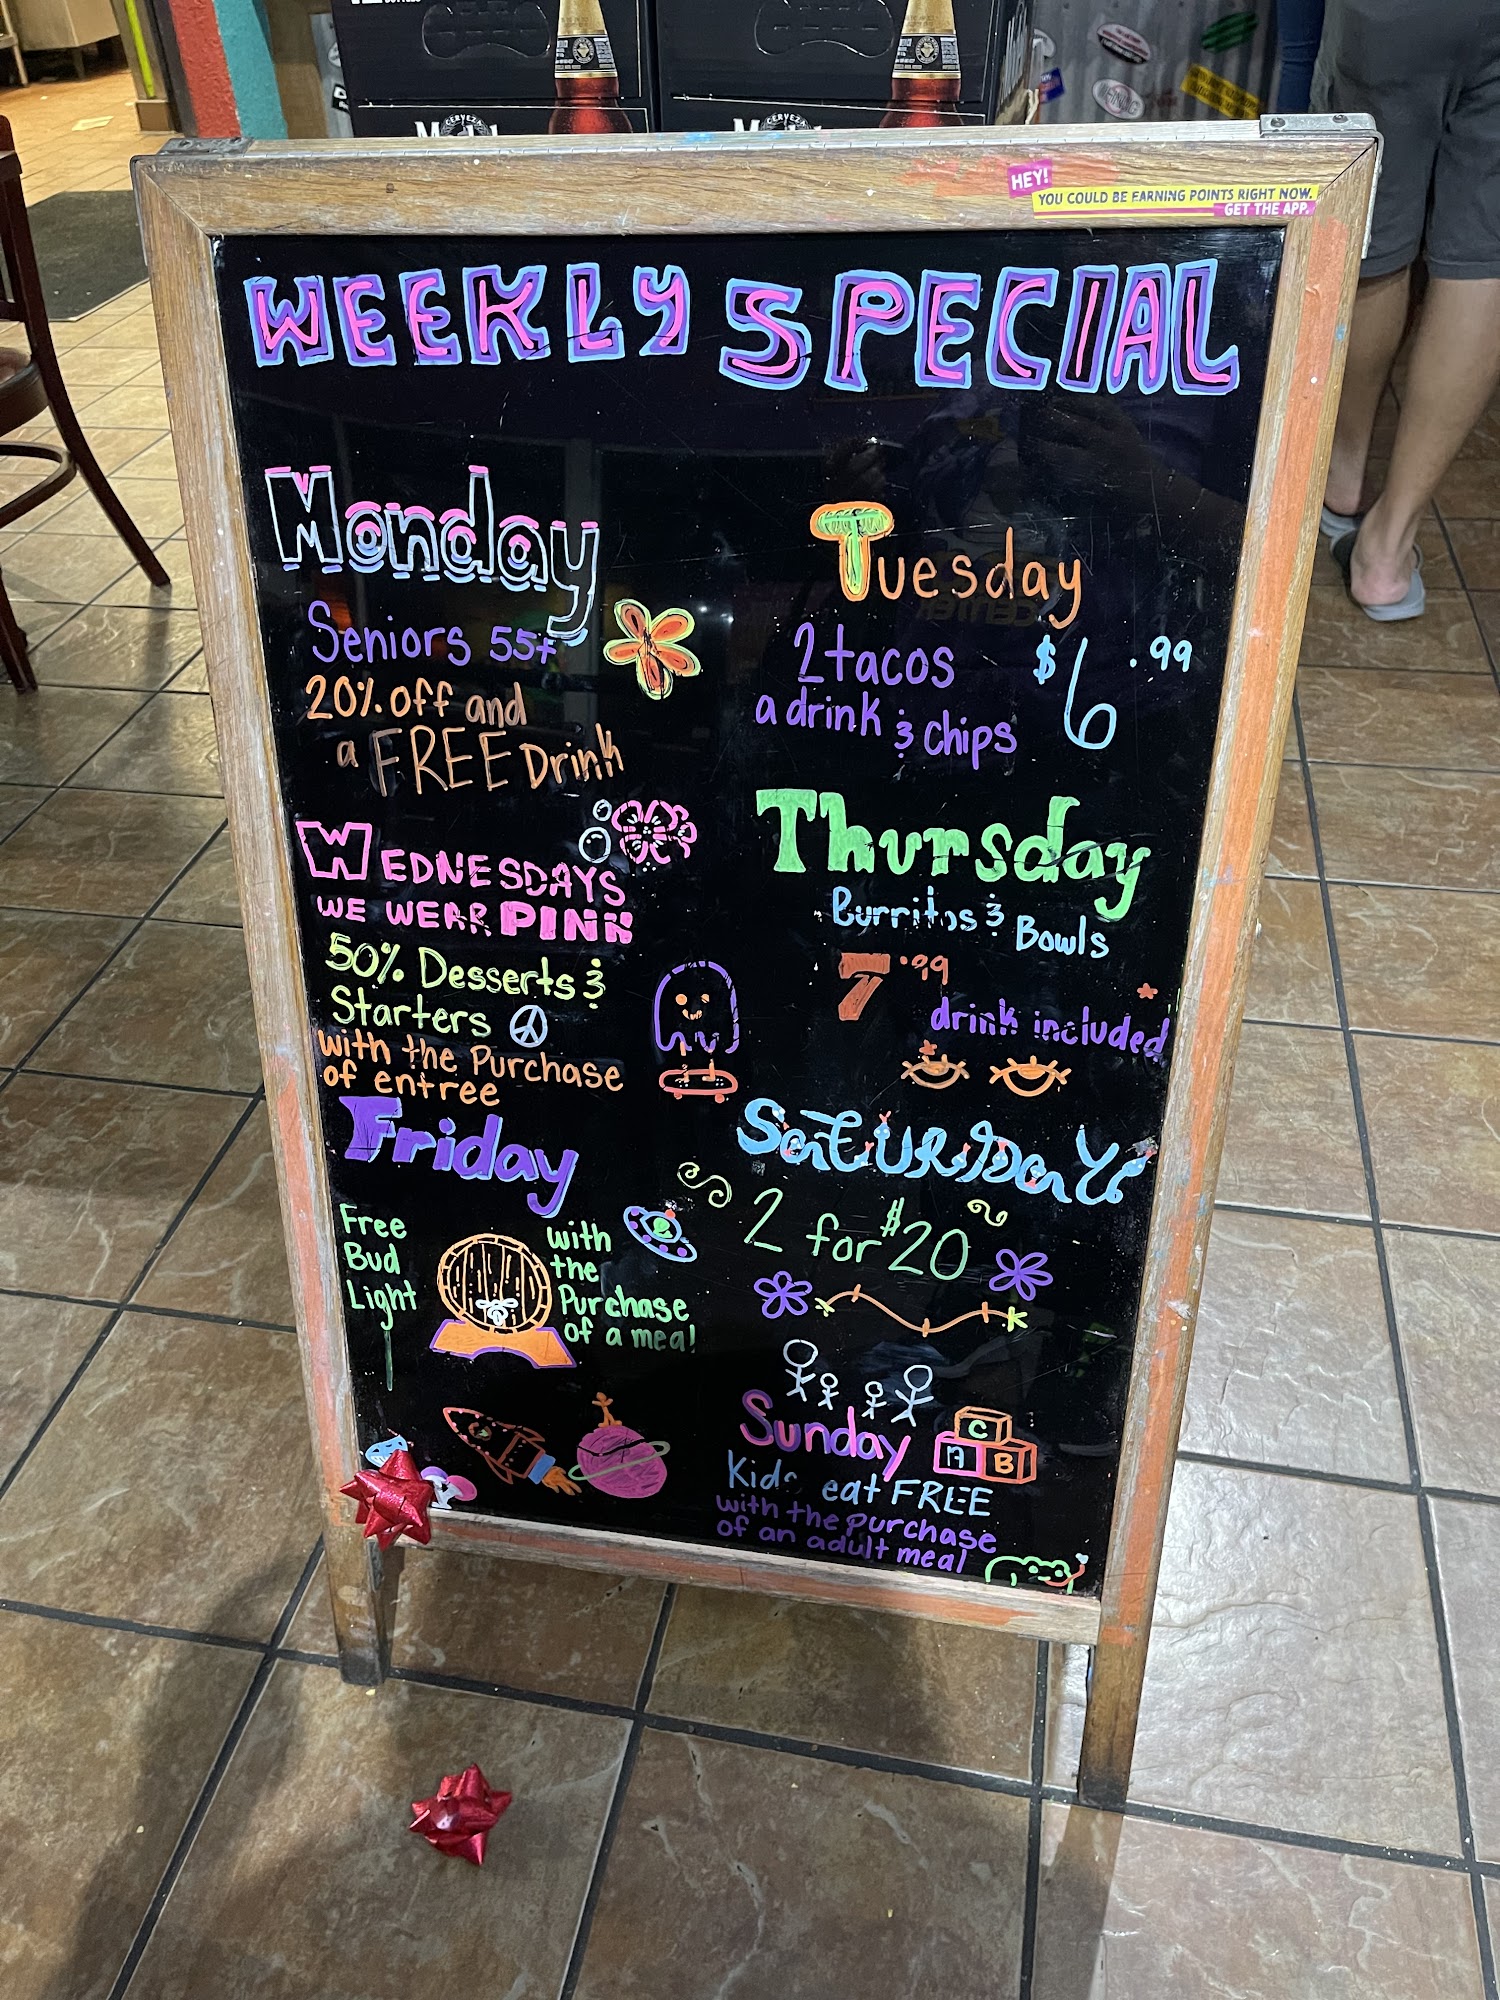 HEY!
YOU COULD BE EARNING POINTS RIGHT NOW.
GET THE APP.
WEEKLY SPECIAL
Monday
Seniors 55+
20% off and
a FREE Drink
Tuesday
2 tacos
a drink & chips
$6.99
WEDNESDAYS
WE WEAR PINK
50% Desserts &
Starters
with the Purchase
of entree
Thursday
Burritos & Bowls
7.99
drink included
Friday
Free
Bud
Light
with
the
Purchase
of a meal
SaTURDaY
2 for $20
Sunday
C
A B
Kids eat FREE
with the purchase
of an adult meal
CERVEZA
CERVEZA
WARNING